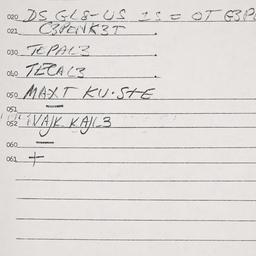 020 DS GL8-US IS = OT G3P
021 C3PENK3T
030 TEPAL3
040 TECAL3
050 MAXT KU·STE
051
052 IVAJK KAJL3
060
061 +